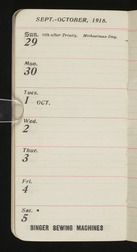 SEPT.-OCTOBER, 1918.
Sun. 18th after Trinity. Michaelmas Day.
29
Mon.
30
Tues.
1 OCT.
Wed.
2
Thur.
3
Fri.
4
Sat.
5
SINGER SEWING MACHINES